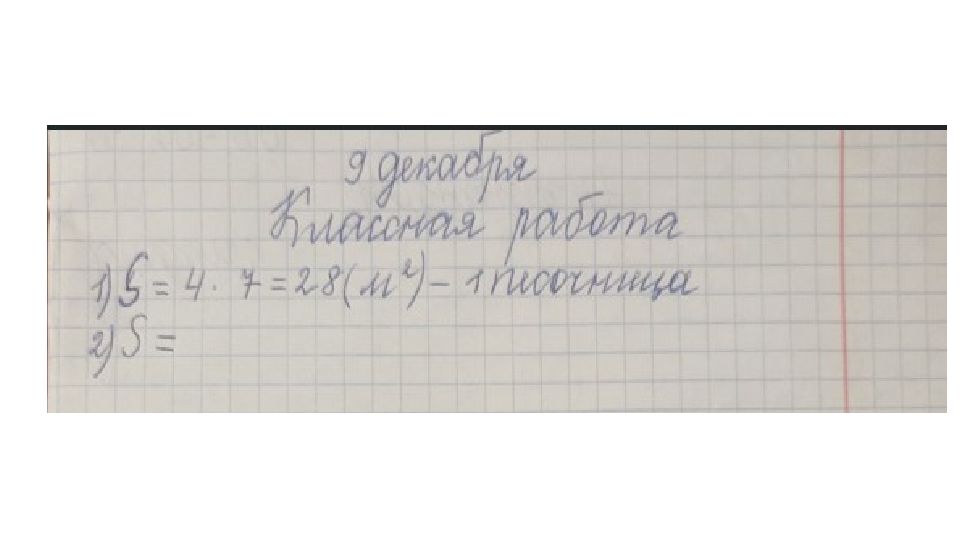 9 декабря
Классная работа
1) S = 4 · 7 = 28 (м²) – 1 песочница
2) S =